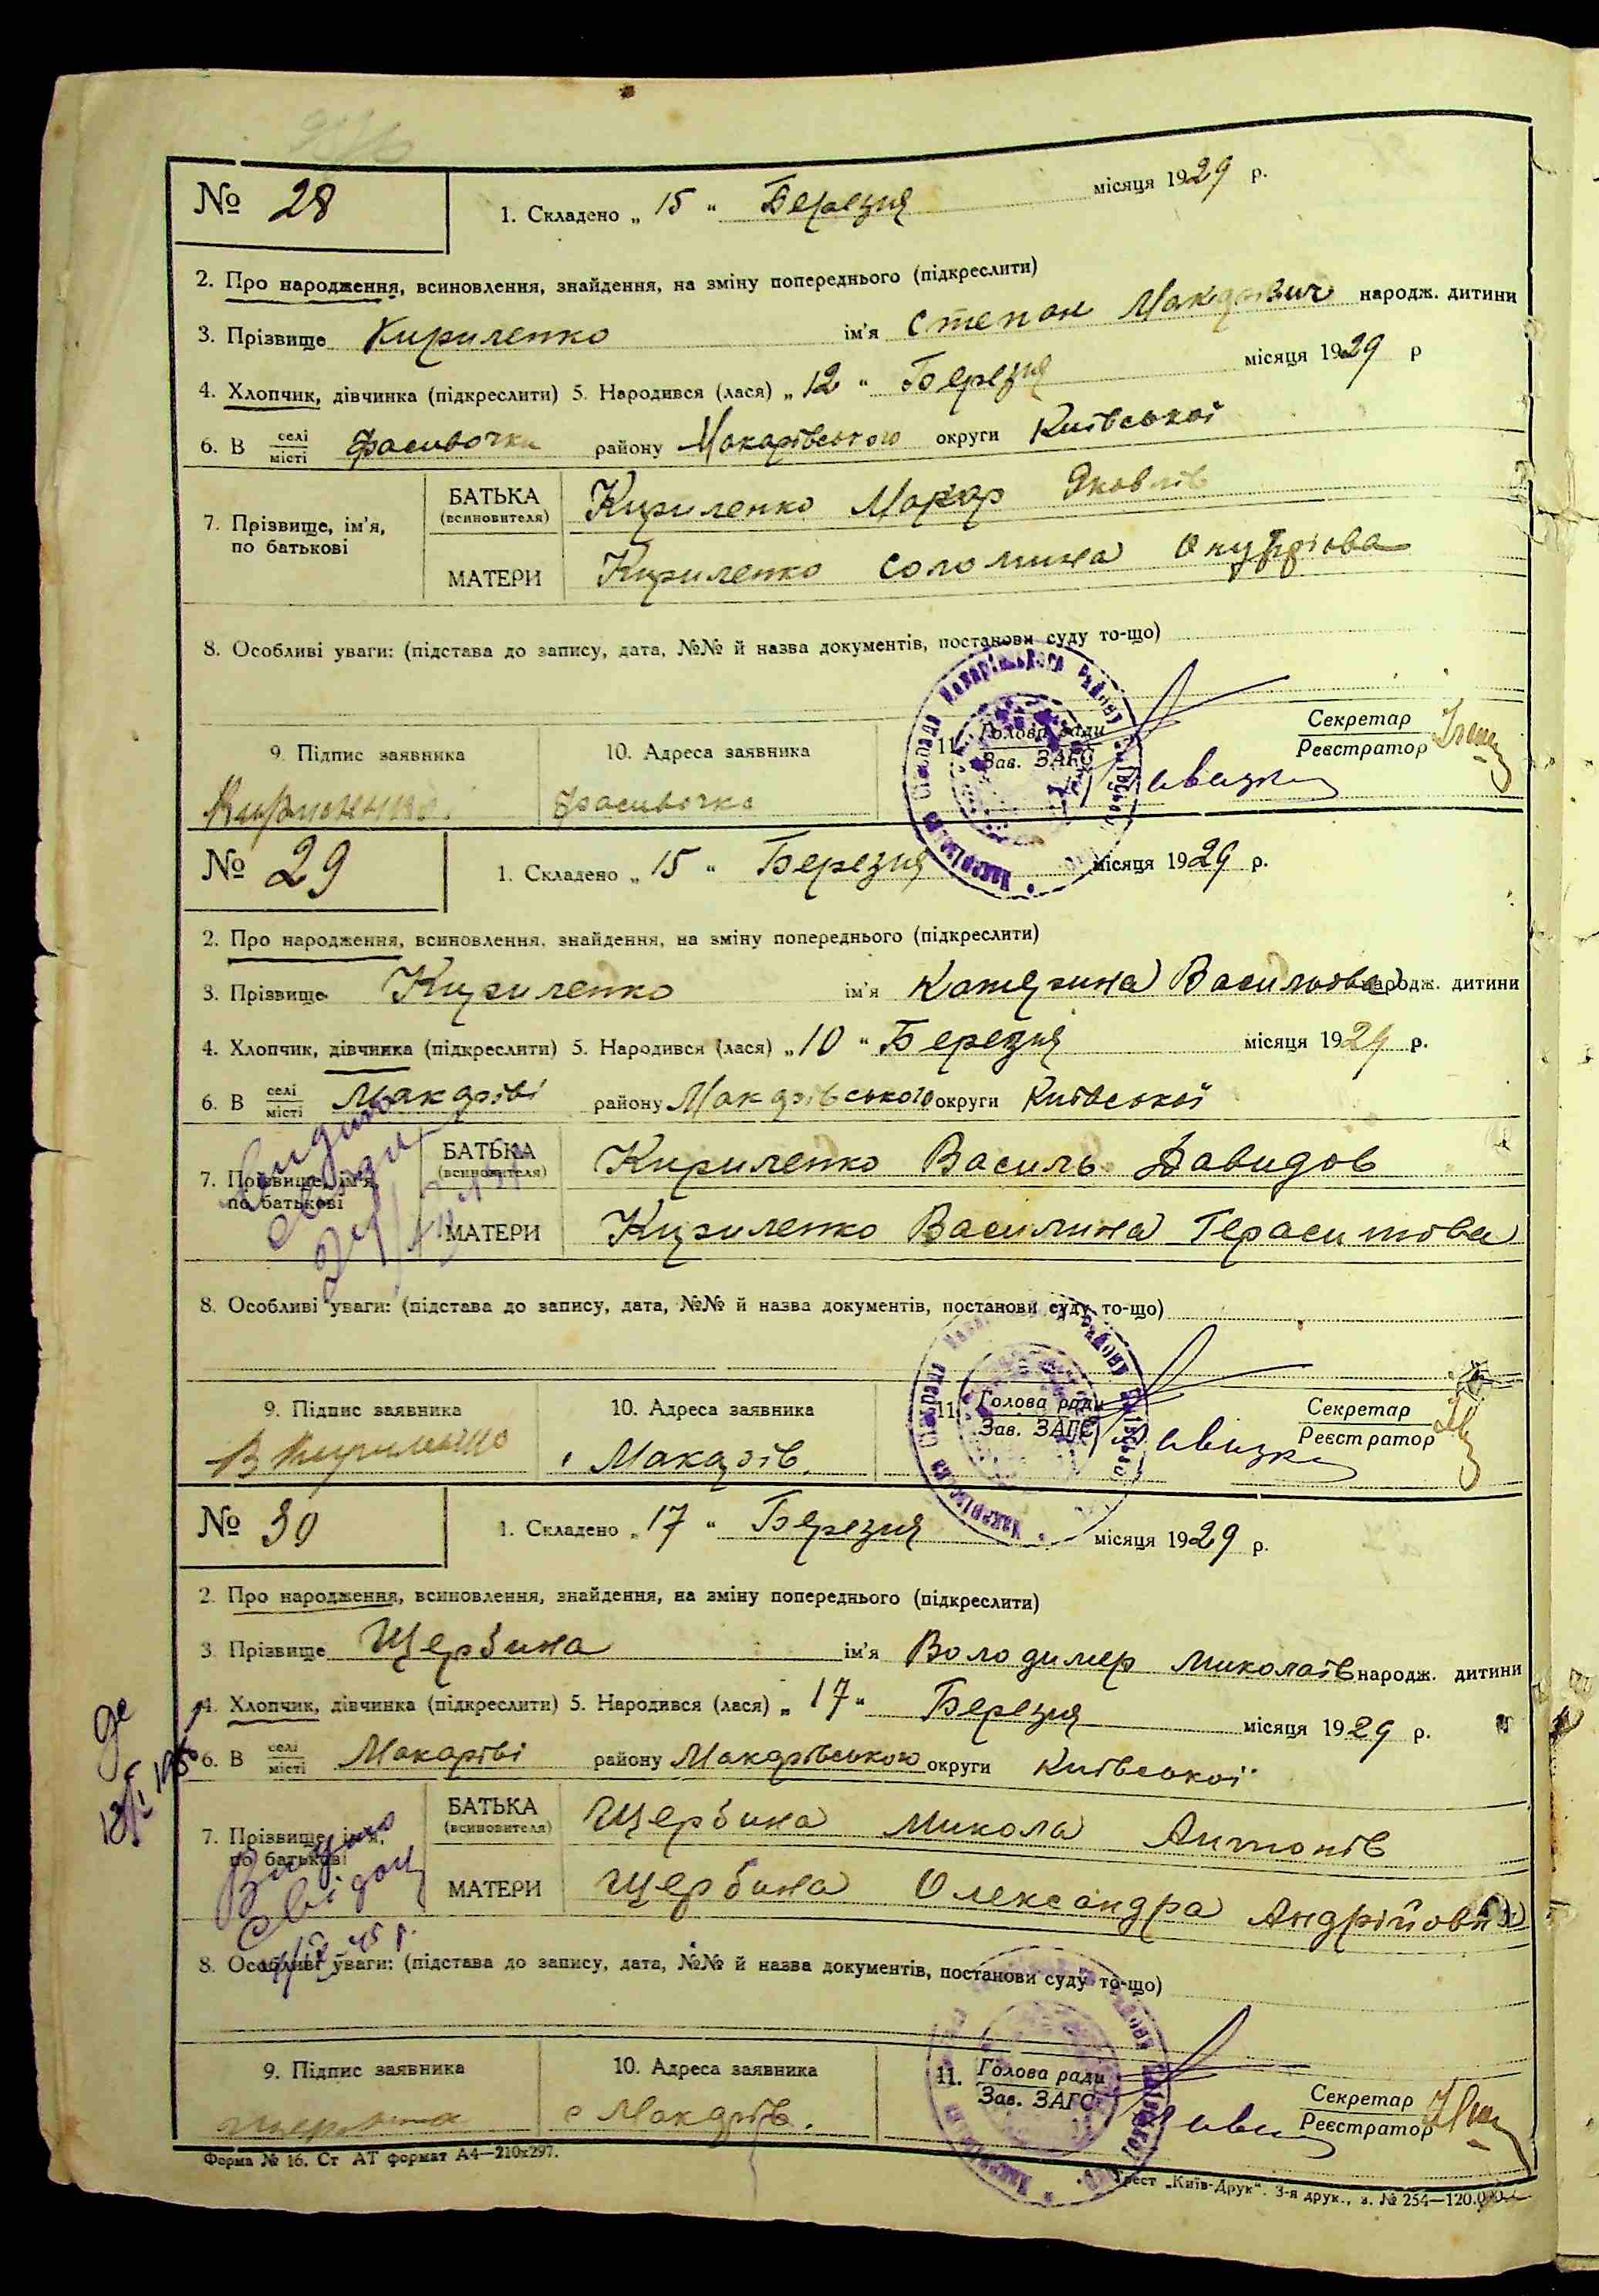 № 28
1. Складено „ 15 " Березня місяця 1929 р.
2. Про народження, всиновлення, знайдення, на зміну попереднього (підкреслити)
3. Прізвище Кириленко ім'я Степан Макарович народж. дитини
4. Хлопчик, дівчинка (підкреслити) 5. Народився (лася) „ 12 " Березня місяця 1929 р
6. В селі/місті Фасивочки району Макарівського округи Київської
7. Прізвище, ім'я, по батькові
БАТЬКА (всиновителя) Кириленко Макар Яковлів
МАТЕРИ Кириленко Соломина Онуфріова
8. Особливі уваги: (підстава до запису, дата, №№ й назва документів, постанови суду то-що)
9. Підпис заявника
10. Адреса заявника
11. Голова ради
Зав. ЗАГС
Секретар
Реєстратор
Фасивочка
№ 29
1. Складено „ 15 " Березня місяця 1929 р.
2. Про народження, всиновлення, знайдення, на зміну попереднього (підкреслити)
3. Прізвище Кириленко ім'я Катерина Васильова народж. дитини
4. Хлопчик, дівчинка (підкреслити) 5. Народився (лася) „ 10 " Березня місяця 1929 р.
6. В селі/місті Макарові району Макарівського округи Київської
7. Прізвище, ім'я, по батькові
БАТЬКА (всиновителя) Кириленко Василь Давидов
МАТЕРИ Кириленко Василина Герасимова
8. Особливі уваги: (підстава до запису, дата, №№ й назва документів, постанови суду то-що)
9. Підпис заявника
10. Адреса заявника
11. Голова ради
Зав. ЗАГС
Секретар
Реєстратор
В Кириленко
Макарів
№ 30
1. Складено „ 17 " Березня місяця 1929 р.
2. Про народження, всиновлення, знайдення, на зміну попереднього (підкреслити)
3 Прізвище Щербина ім'я Володимер Миколаїв народж. дитини
4. Хлопчик, дівчинка (підкреслити) 5. Народився (лася) „ 17 " Березня місяця 1929 р.
6. В селі/місті Макарові району Макарівського округи Київської
7. Прізвище, ім'я, по батькові
БАТЬКА (всиновителя) Щербина Микола Антонів
МАТЕРИ Щербина Олександра Андрійовн
Видано
свідоц
45 р.
8. Особливі уваги: (підстава до запису, дата, №№ й назва документів, постанови суду то-що)
9. Підпис заявника
10. Адреса заявника
11. Голова ради
Зав. ЗАГС
Секретар
Реєстратор
Щербина
с Макарів.
Форма № 16. Ст АТ формат А4—210х297.
Трест „Київ-Друк". 3-я друк., з. № 254—120.000